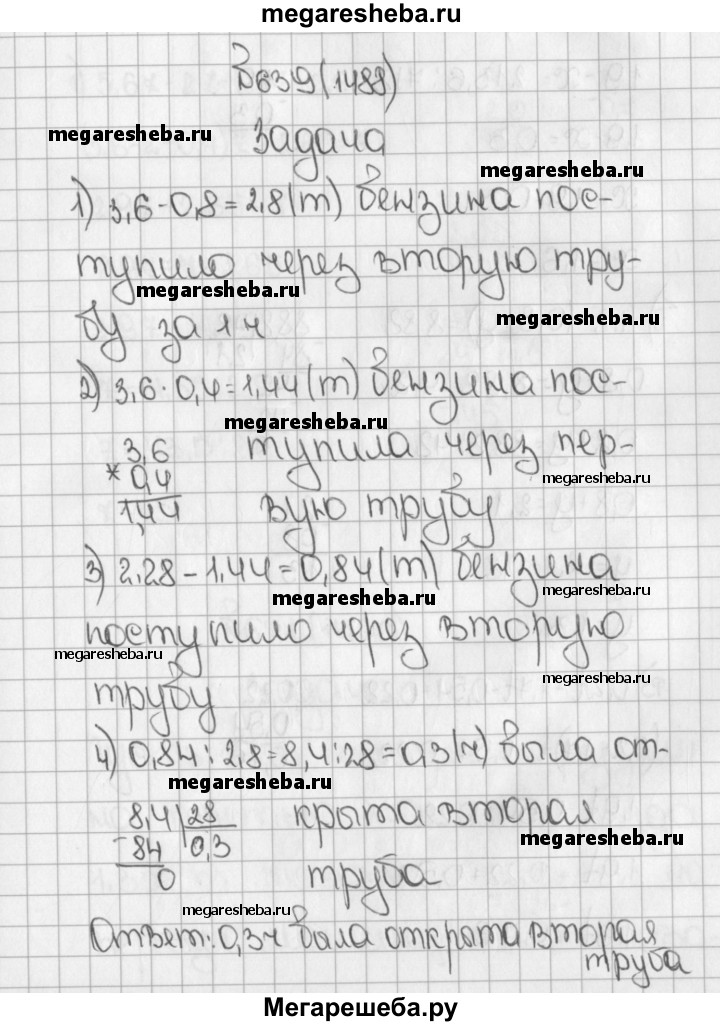 megaresheba.ru
№639(1488)
megaresheba.ru
Задача
megaresheba.ru
1) 3,6-0,8=2,8(т) бензина пос-
тупило через вторую тру-
megaresheba.ru
бу за 1 ч
megaresheba.ru
2) 3,6·0,4=1,44(т) бензина пос-
megaresheba.ru
3,6 тупила через пер-
* 0,4
megaresheba.ru
1,44 вую трубу
3) 2.28-1.44=0,84(т) бензина
megaresheba.ru
megaresheba.ru
поступило через вторую
megaresheba.ru
трубу
megaresheba.ru
4) 0,84:2,8=8,4:28=0,3(ч) была от-
megaresheba.ru
8,4 28 крыта вторая
-84 0,3
megaresheba.ru
0 труба
megaresheba.ru
Ответ: 0,3ч была открыта вторая
труба
megaresheba.ru
Мегарешеба.ру